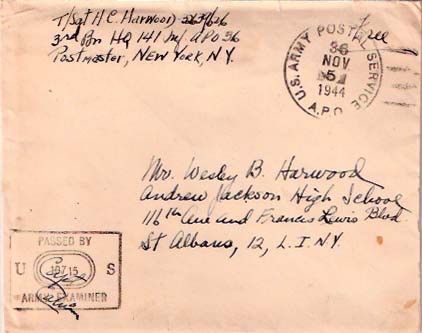 T/Sgt H C Harwood
3rd Bn HQ 141 Inf APO 36
Postmaster, NEW YORK, N.Y.
Free
U.S. ARMY POSTAL SERVICE
36
NOV
5
1944
A.P.O.
Mr. Wesley B. Harwood
Andrew Jackson High School
116th Ave and Francis Lewis Blvd
St Albans, 12, L.I. N.Y.
PASSED BY
U S
15
ARMY EXAMINER